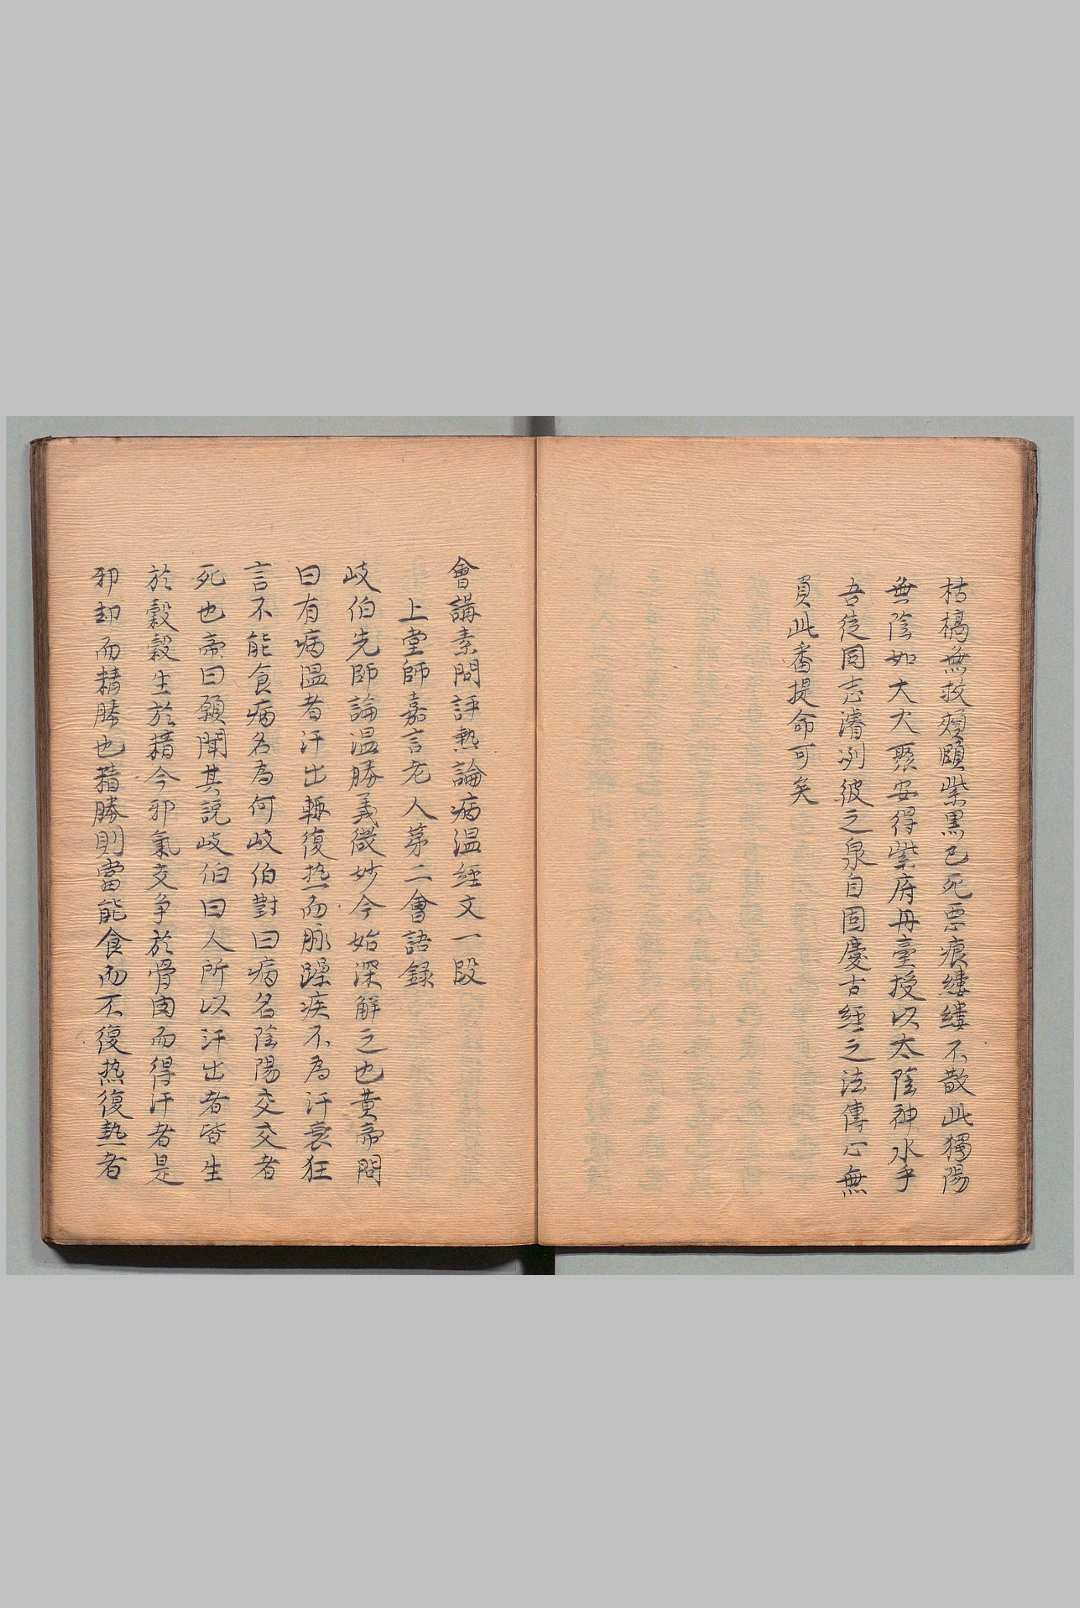 枯槁無救頰頤紫黑已死惡痕縷縷不散此獨陽
無陰如大火聚安得紫府丹臺授以太陰神水乎
吾徒同志濬冽彼之泉自固慶古經之法傳心無
負此番提命可矣
會講素問評熱論病溫經文一段
上堂師嘉言老人第二會語錄
岐伯先師論溫勝義微妙今始深解之也黃帝問
曰有病溫者汗出輒復热而脉躁疾不為汗衰狂
言不能食病名為何岐伯對曰病名陰陽交交者
死也帝曰願聞其説岐伯曰人所以汗出者皆生
於穀穀生於精今邪氣交争於骨肉而得汗者是
邪却而精勝也精勝則當能食而不復热復熱者